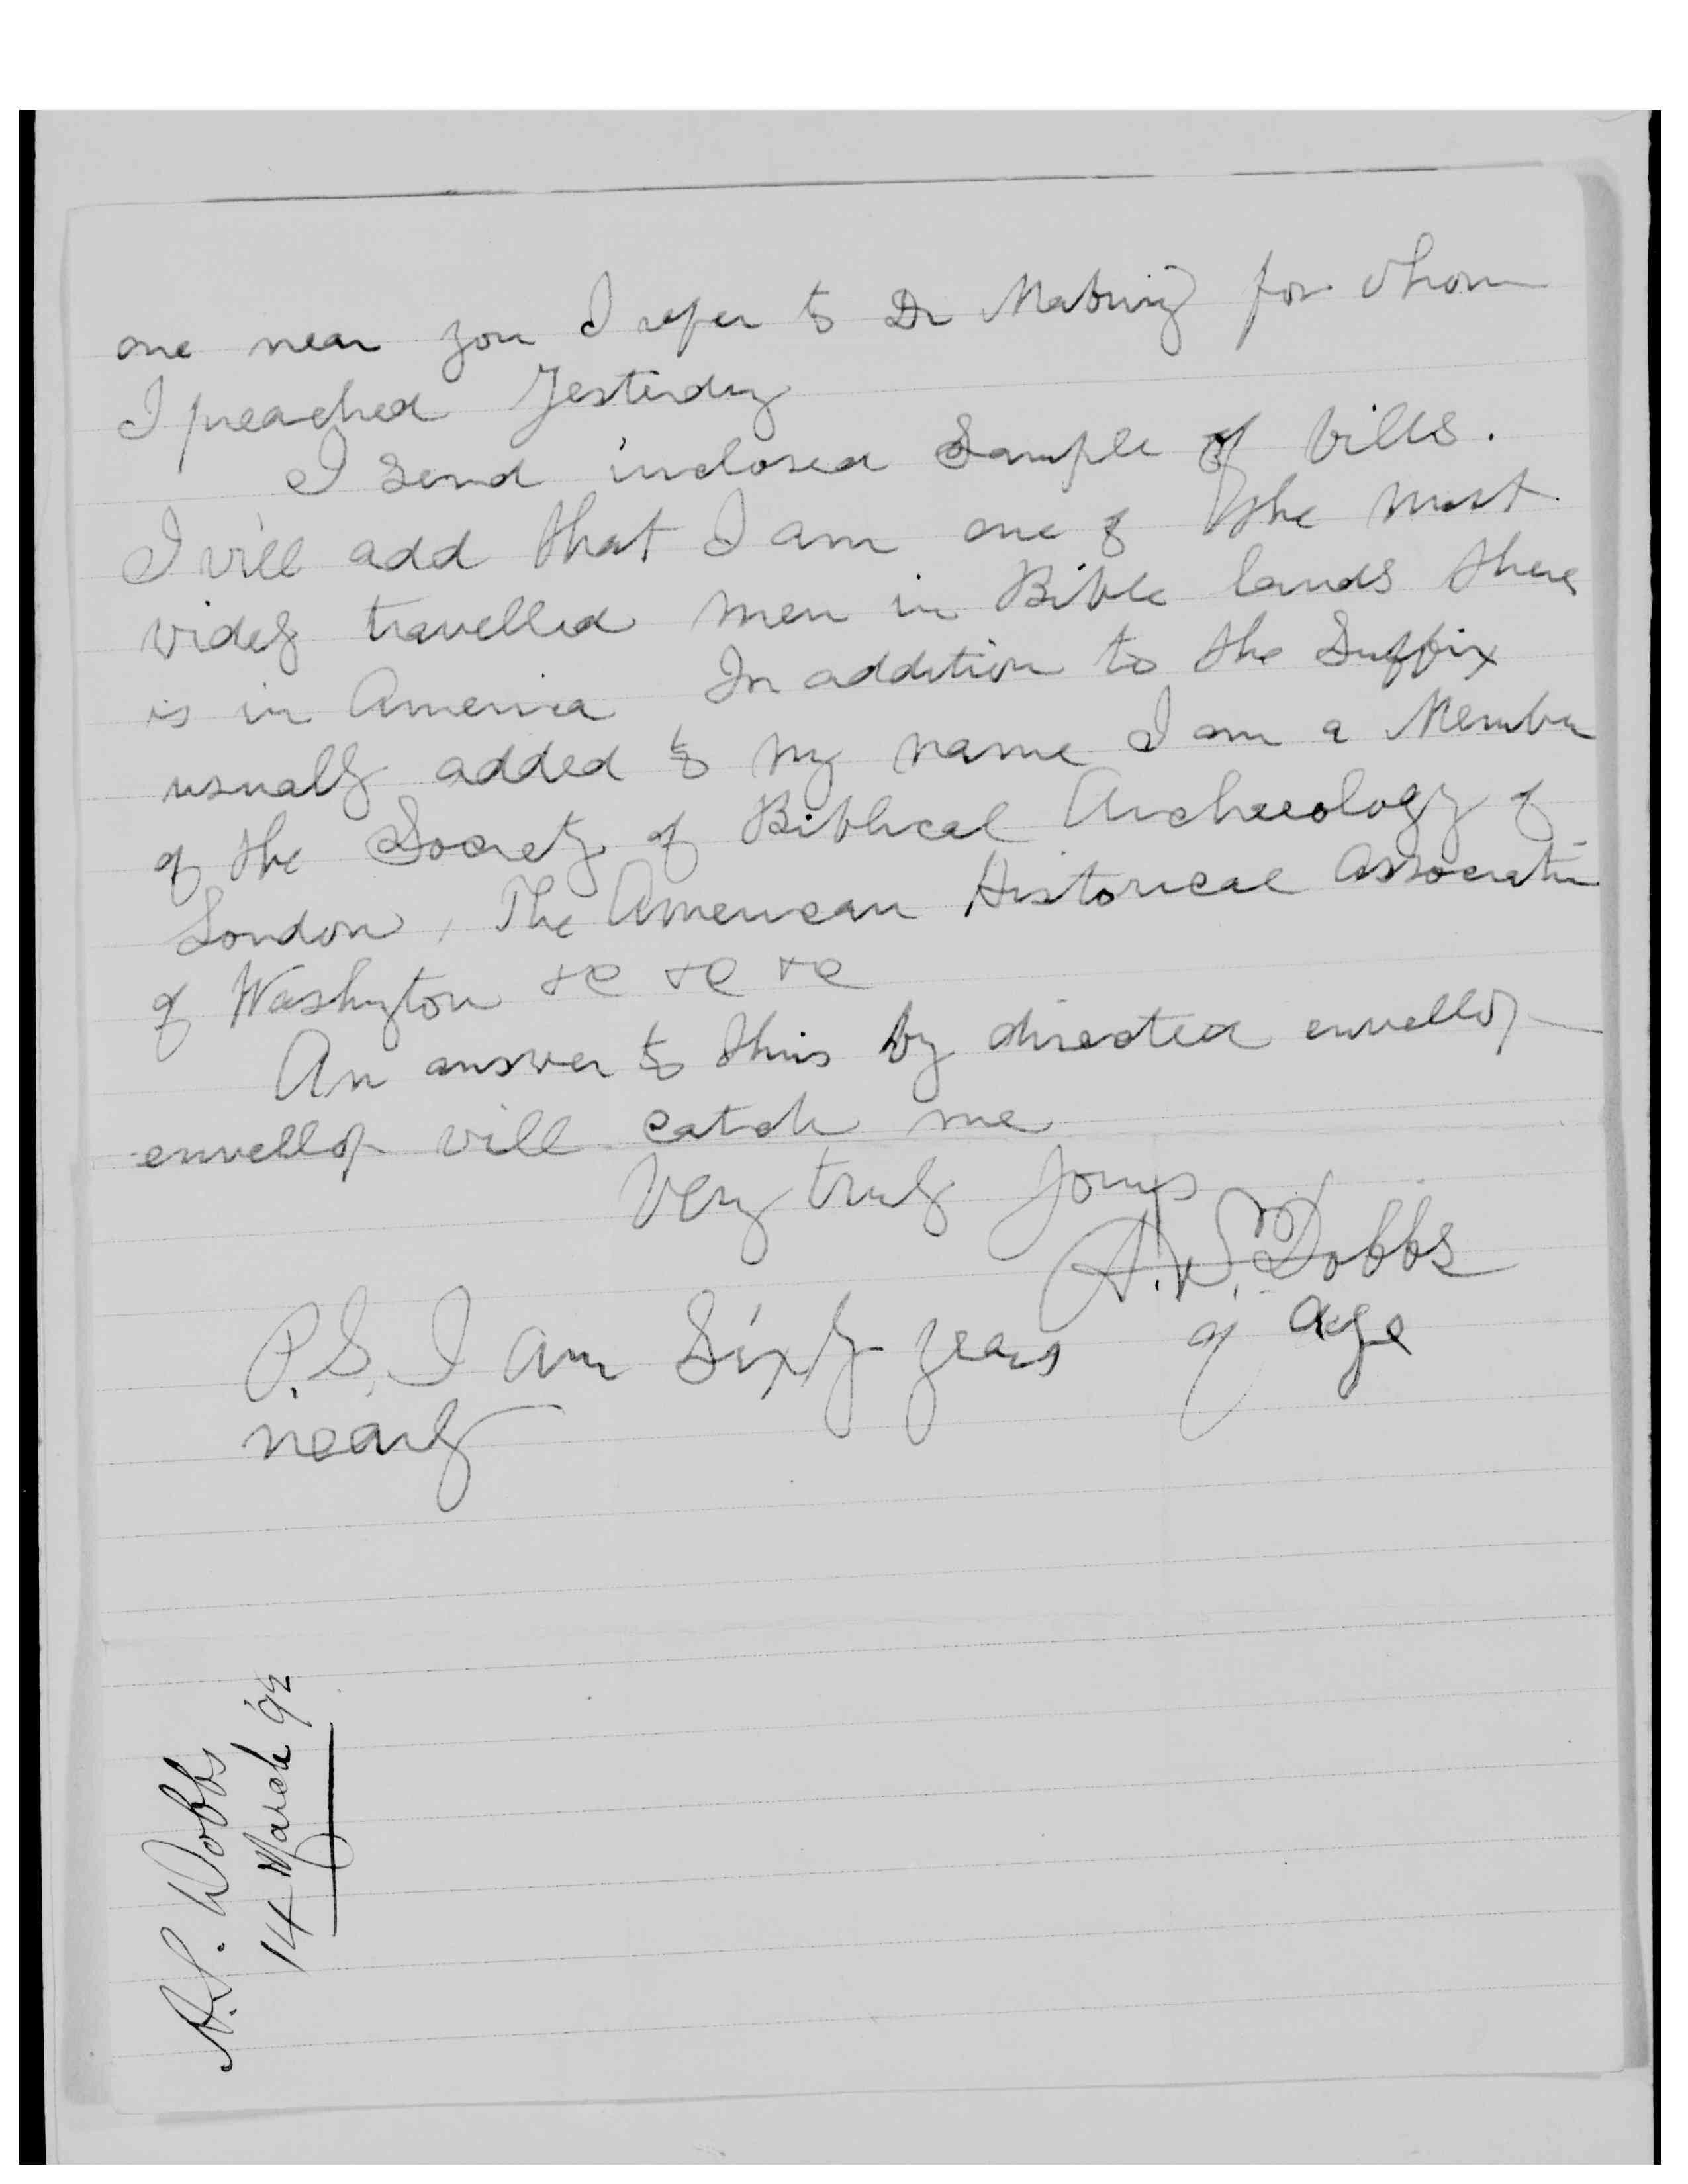 one near you I refer to Dr for whom
I preached Yesterday
I send inclosed Sample of bills.
I will add that I am one of the most
widely travelled men in Bible lands there
is in America In addition to the Suffix
usually added to my name I am a Member
of the Society of Biblical Archaeology of
London, The American Historical Association
of Washington &c &c &c
An answer to this by directed envellop
envellop will catch me
Very truly Yours
A. S. Dobbs
P.S. I am Sixty years of age
nearly
A.S. Dobbs
14 March '92